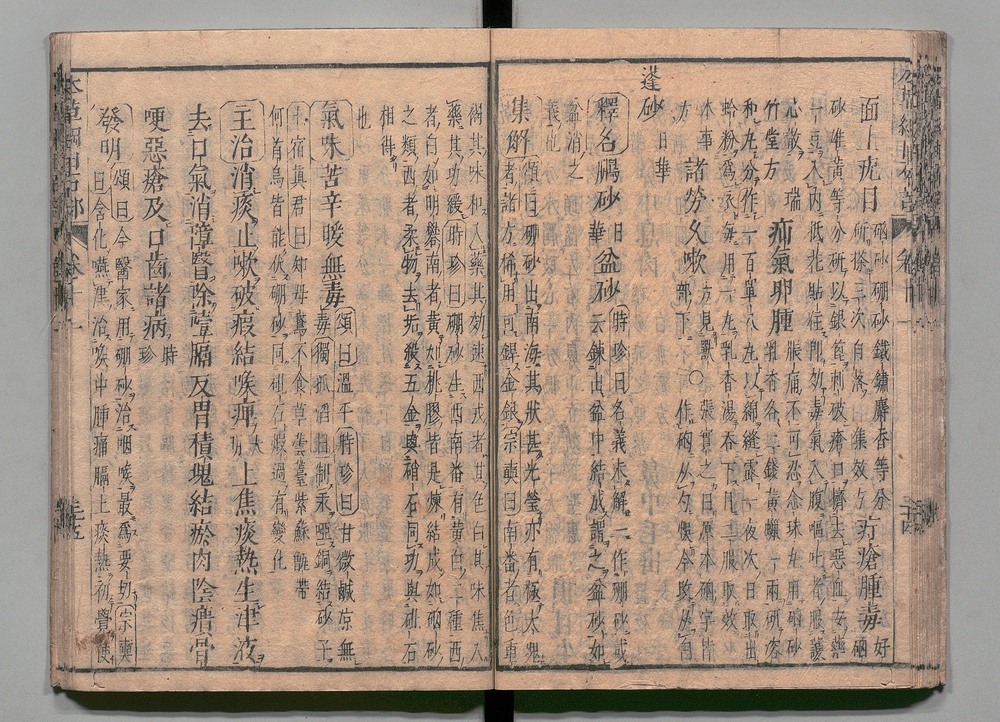 面上疣目 硇砂硼砂鐵鏽麝香等分
研搽三次自落 集效方 疔瘡腫毒 好硇
砂雄黃等分研以銀篦刺破瘡口擠去惡血安藥
一豆入內紙花貼住即効毒氣入腹嘔吐者服護
心散 瑞
竹堂方 疝氣卵腫 脹痛不可忍念珠丸用硇砂
乳香各二錢黃蠟一兩研溶
和丸分作一百單八丸以綿縫露一夜次日取出
蛤粉爲衣每用一丸乳香湯吞下日二服取效
本事
方 諸勞久嗽 方見獸部下 ○
蓬砂 日華
釋名 鵬砂 日華 盆砂 時珍曰名義未解一作硼砂或
云鍊出盆中結成謂之盆砂如
盆消之
義也
集解 頌曰硼砂出南海其狀甚光瑩亦有極大塊
者諸方稀用可銲金銀宗奭曰南番者色重
褐其味和入藥其効速西戎者其色白其味焦入
藥其功緩時珍曰硼砂生西南番有黃白二種西
者白如明礬南者黃如桃膠皆是煉結成如硇砂
之類西者柔物去垢殺五金與硝石同功與砒石
相得
也
氣味 苦辛暖無毒 頌曰溫平時珍曰甘微鹹凉無
毒獨孤滔曰制汞啞銅結砂子
土宿眞君曰知母鵞不食草蕓薹紫蘇甑帶
何首烏皆能伏硼砂同砒石煅過有變化
主治 消痰止嗽破癥結喉痺 大明 上焦痰熱生津液
去口氣消障翳除噎膈反胃積塊結瘀肉陰㿉骨
哽惡瘡及口齒諸病 時珍
發明 頌曰今醫家用硼砂治咽喉最爲要切宗奭
曰含化嚥津治喉中腫痛膈上痰熱初覺便
本草綱目石部